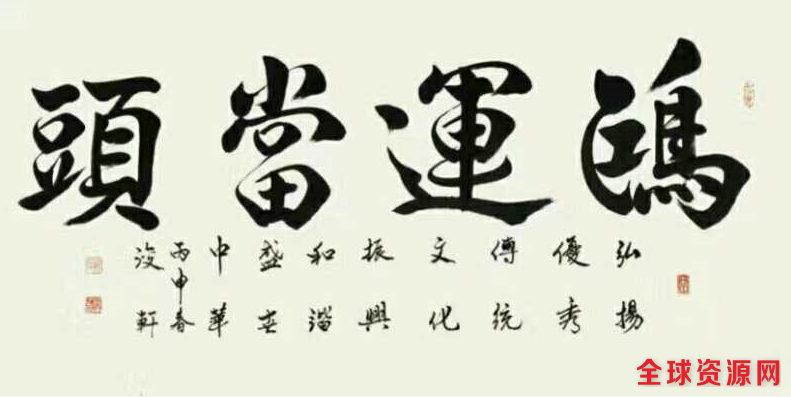 鴻運當頭
弘揚
優秀
傳統
文化
振興
和諧
盛世
中華
丙申春
浚軒
全球资源网